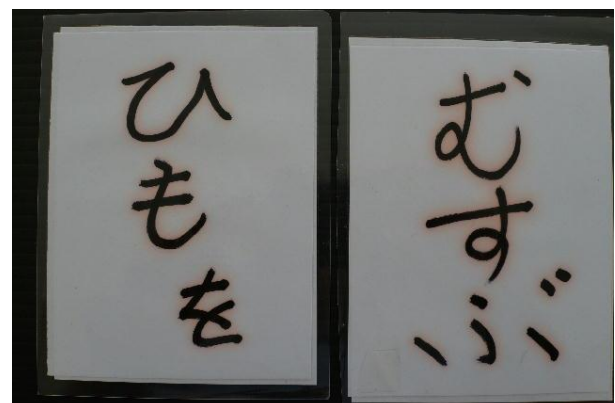 ひもを
むすぶ